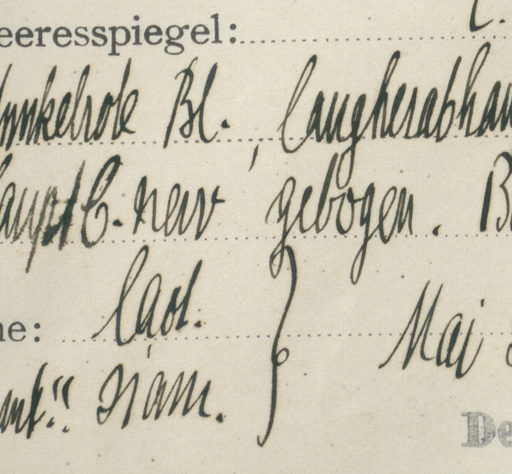 eeresspiegel:
unkelrote Bl., langherabhan
haupt b. nerv gebogen. B
ne: Caod. } Mai
ank" nam.
De